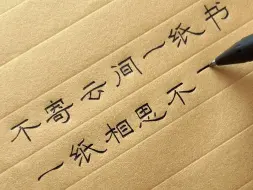 不寄云间一纸书
一纸相思不